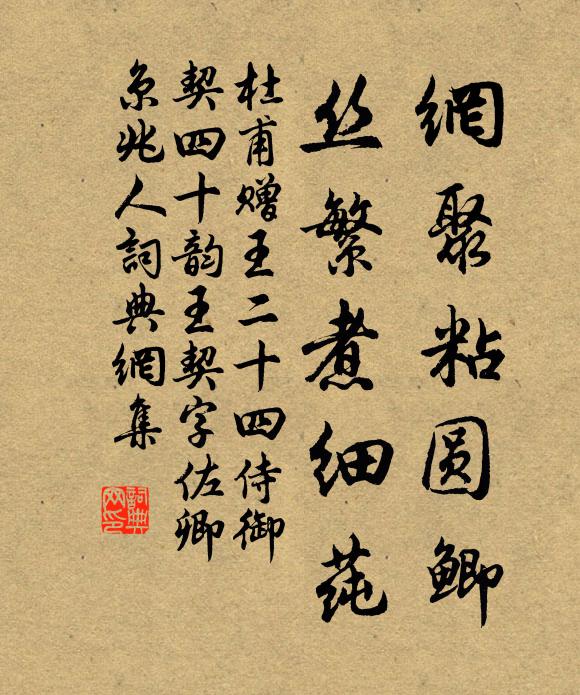 網聚粘圆鲫
丝繁煮细莼
杜甫赠王二十四侍御
契四十韵王契字佐卿
京兆人詞典網集
詞典
网印